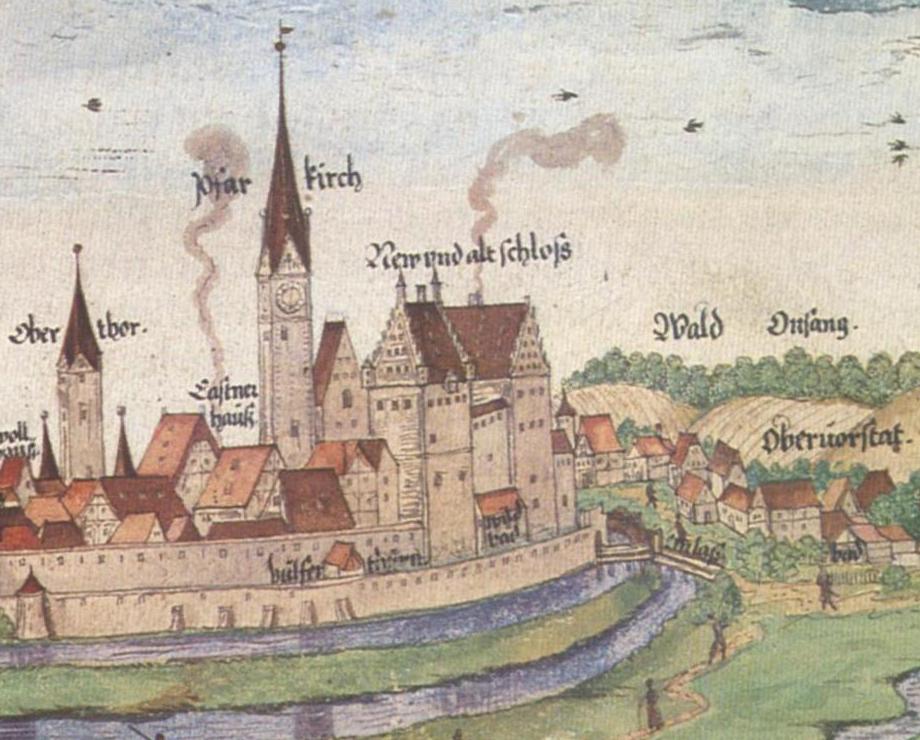 Pfar kirch
New vnd alt schloss
Ober thor.
Wald Onfang.
Castner
hauß
Oberuorstat.
wild
bad
bad